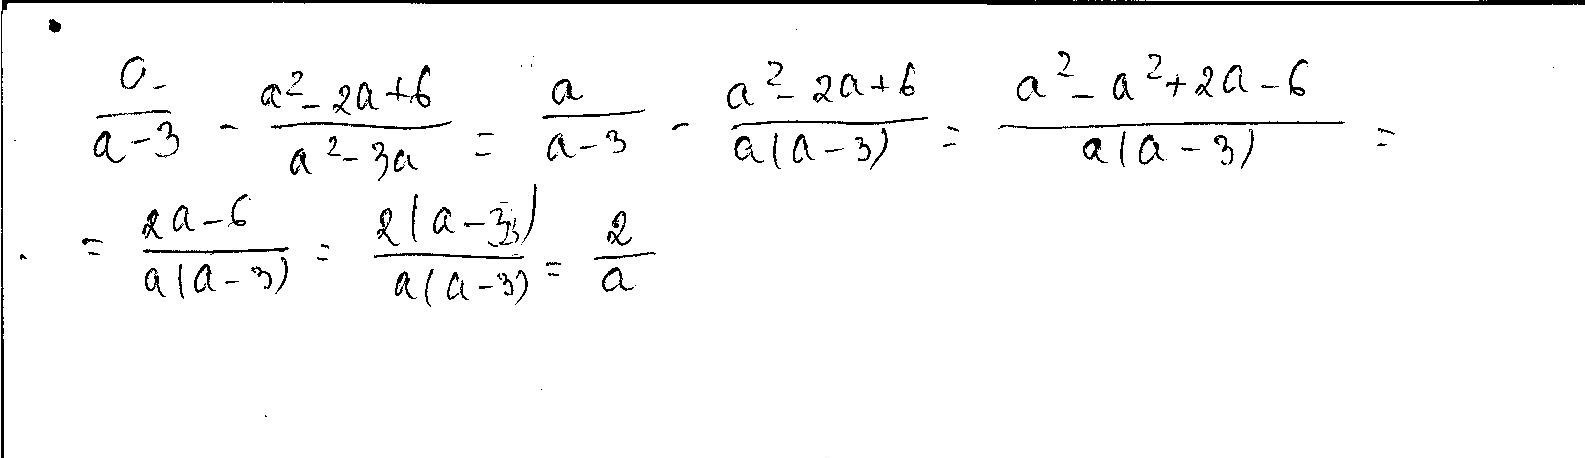 a/(a-3) - (a²-2a+6)/(a²-3a) = a/(a-3) - (a²-2a+6)/(a(a-3)) = (a²-a²+2a-6)/(a(a-3)) =
= (2a-6)/(a(a-3)) = 2(a-3)/(a(a-3)) = 2/a